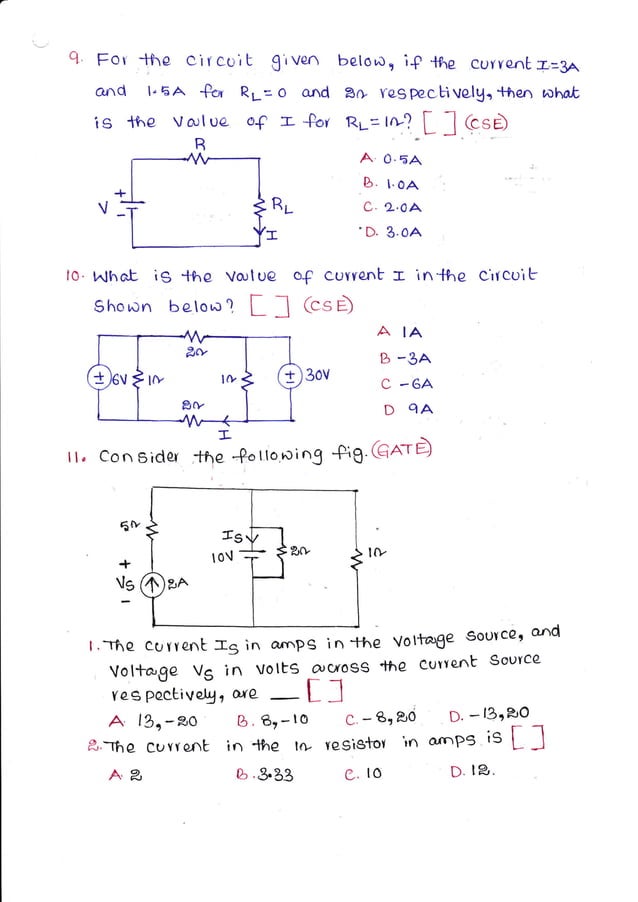 9. For the circuit given below, if the current I=3A
and 1.5A for RL=0 and 2Ω respectively, then what
is the value of I for RL=1Ω? [ ] (CSE)
R
V
+
−
RL
I
A. 0.5A
B. 1.0A
C. 2.0A
D. 3.0A
10. What is the value of current I in the circuit
shown below? [ ] (CSE)
2Ω
6V
1Ω
1Ω
30V
2Ω
I
A 1A
B -3A
C -6A
D 9A
11. Consider the following fig. (GATE)
5Ω
+
Vs
−
2A
Is
10V
2Ω
1Ω
1. The current Is in amps in the voltage source, and
voltage Vs in volts across the current source
respectively, are __ [ ]
A. 13,-20 B. 8,-10 C. -8,20 D. -13,20
2. The current in the 1Ω resistor in amps is [ ]
A. 2 B. 3.33 C. 10 D. 12.